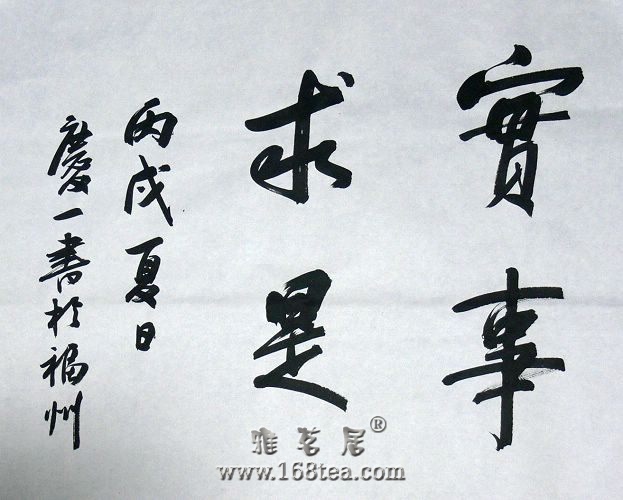 實事
求是
丙戌夏日
慶一書於福州
雅茗居®
www.168tea.com